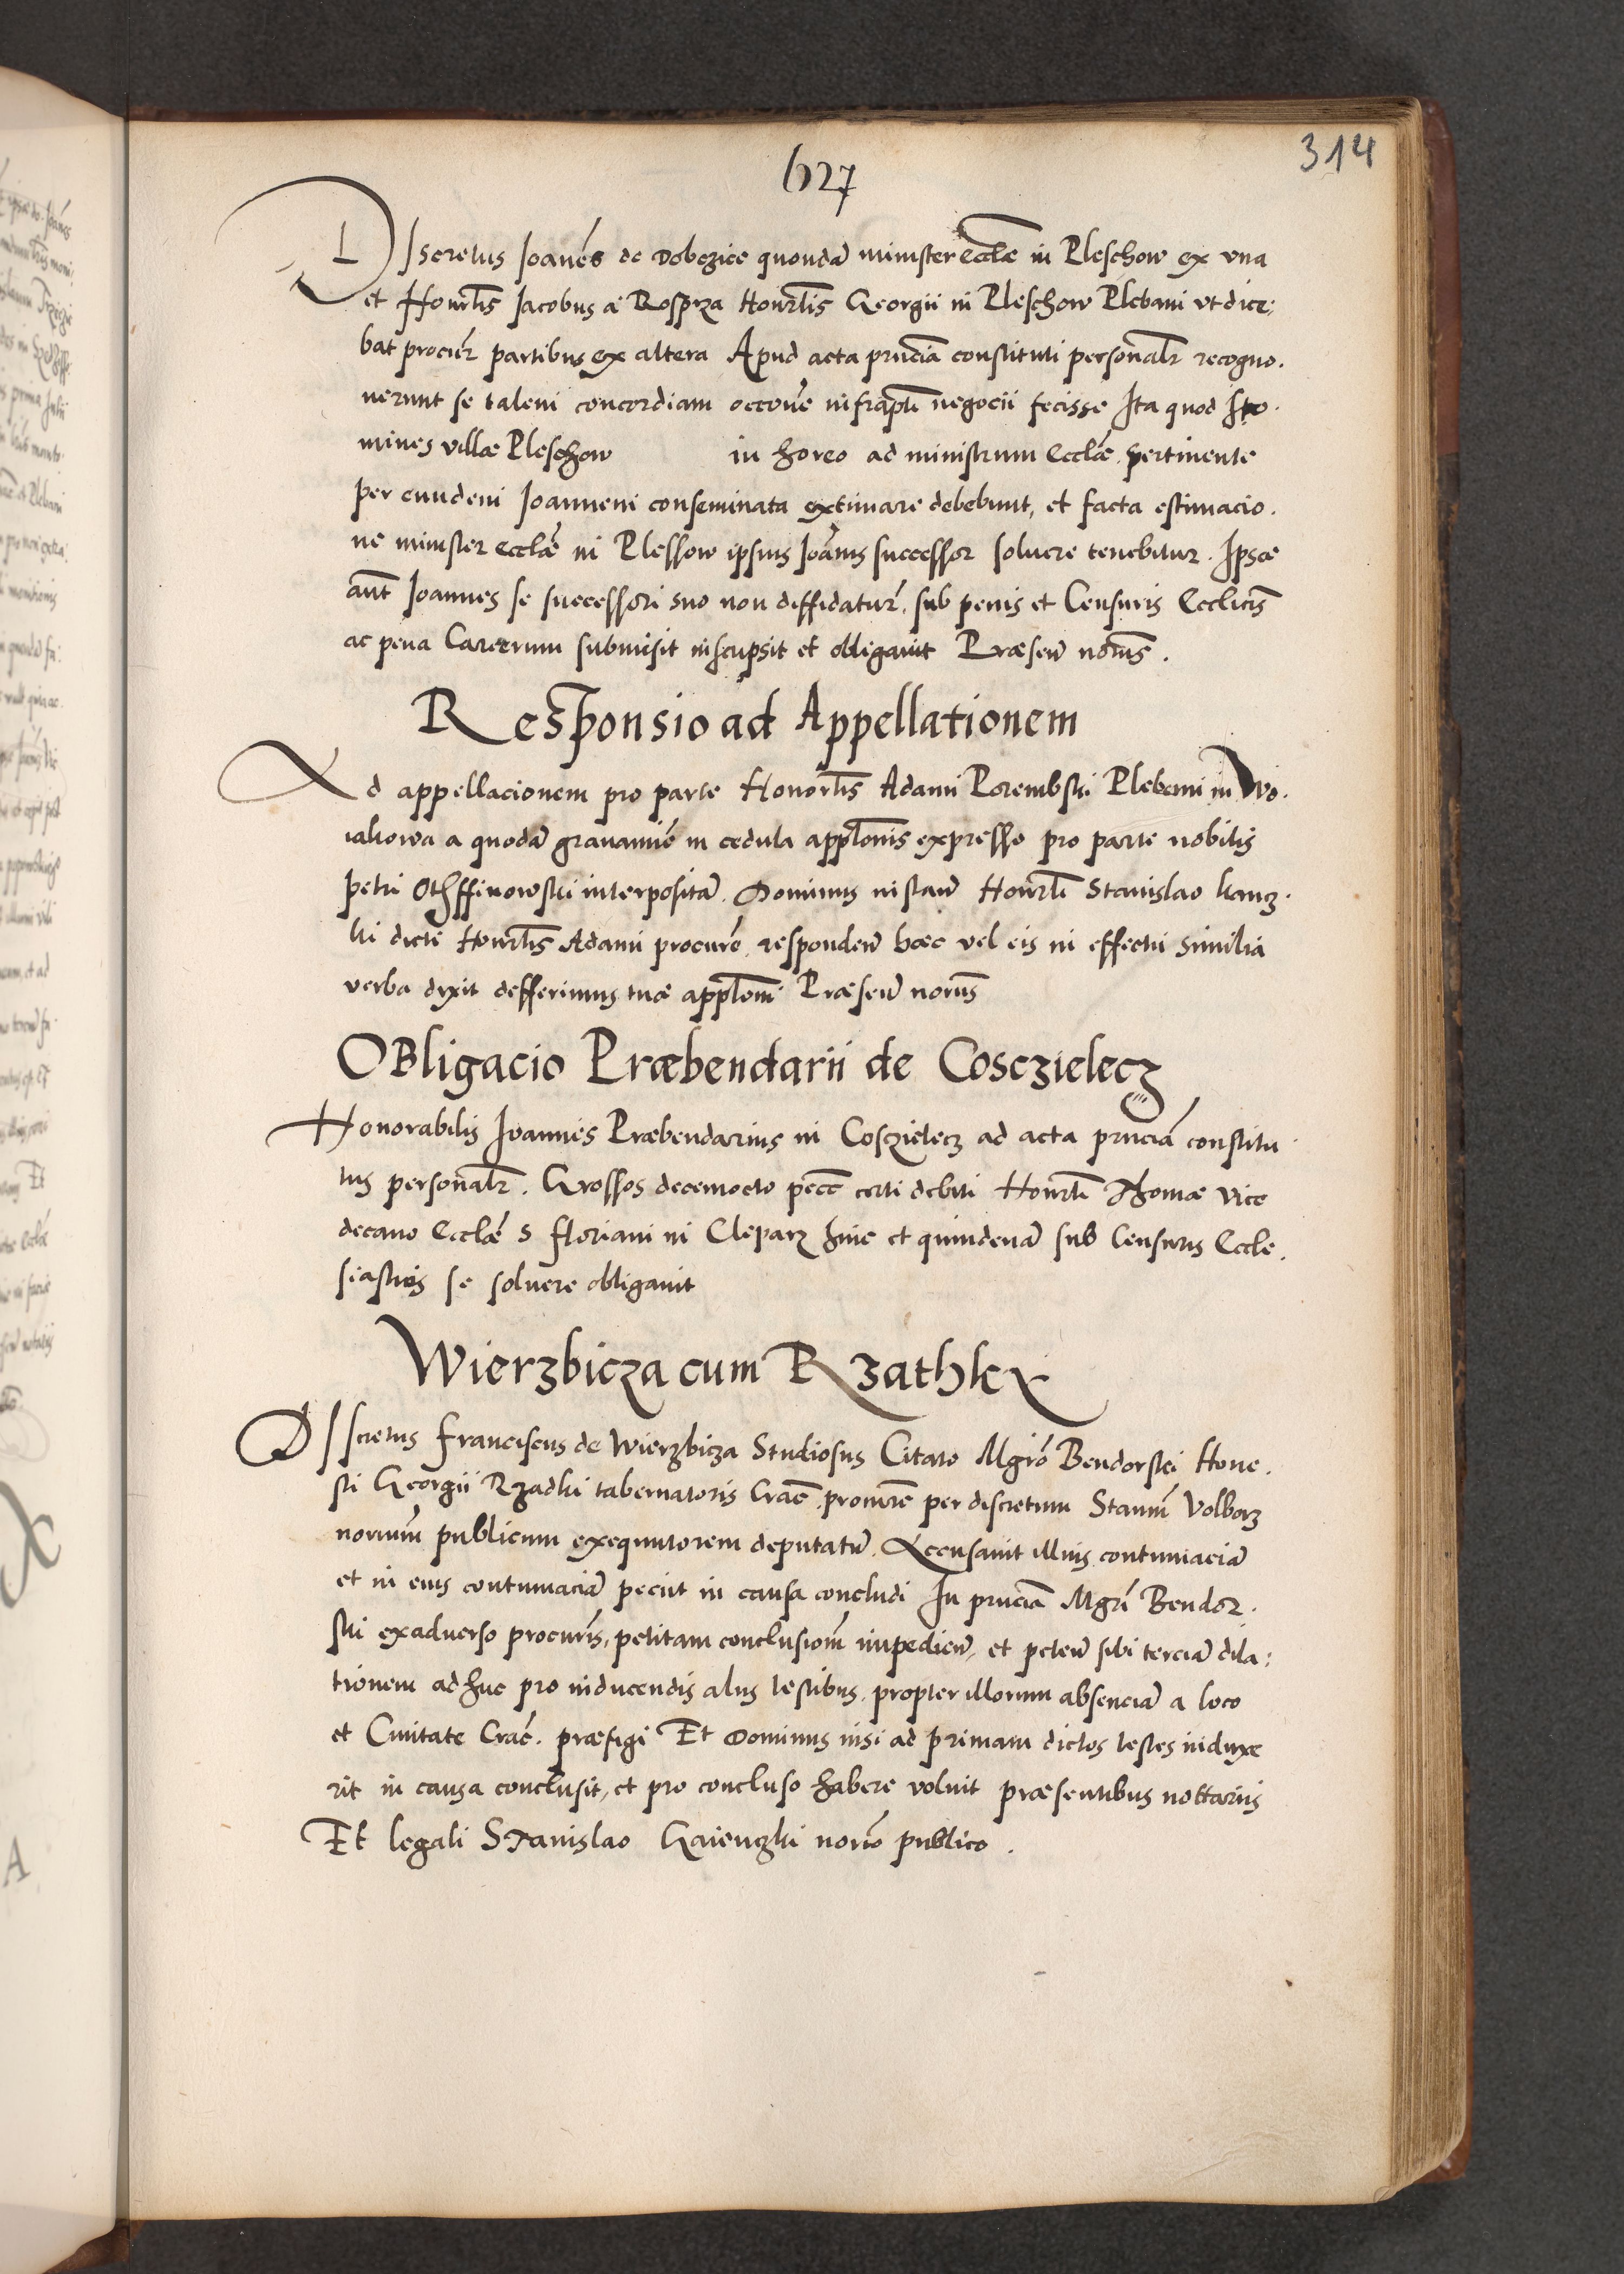 314
627
DIscretus Joanēs de Dobczice quondā minister Ecclæ in Pleschow ex vna
et Honrlīs Jacobus a Rosprza Honrlīs Georgii in Pleschow Plebani vt dice:
bat procūr partibus ex altera Apud acta pnciā constituti personalr recogno.
uerunt se talem concordiam occōne infrapti negocii fecisse Ita quod Ho.
mines villæ Pleschow in horeo ad ministrum Ecclæ pertinente
per eundem Joannem conseminata extimare debebunt, et facta estimacio.
ne minister ecclæ in Plessow ipsius Joānis successor soluere tenebitur. Ipse
aūt Joannes se successori suo non diffidatur, sub penis et Censuris Eccliciš
ac pena Carcerum submisit inscripsit et obligauit Præsen norīis.
Responsio ad Appellationem
Ad appellacionem pro parte Honorlīs Adami Porembski Plebani in Wo.
iakowa a quodā grauamīe in cedula applonis expresso pro parte nobilis
petri Othffinowski interpositā. Dominus instan Honrli Stanislao kanz.
ki dicti Honrlīs Adami procurē respondeñ hæc vel eis in effectu similia
verba dixit defferimus tuæ applōni Præsen norīis
OBligacio Præbendarii de Cosczielecz
Honorabilis Joannes Præbendarius in Cosczielecz ad acta pnciā constitu
tus personalr. Grossos decemocto pecc certi debiti Honrli Thomæ vice
decano Ecclæ S floriani in Cleparz hinc et quindenā sub Censuris Eccle.
siasticis se soluere obligauit
Wierzbicza cum Rzathky
DIscretus Franciscus de Wierzbicza Studiosus Citato Mgrō Bendorski Hone.
sti Georgii Rzadki tabernatoris Craē procurē per discretum Stanm Volborz
norium publicum exequutorem deputatū. Accusauit illius contumaciā
et in eius contumaciā peciit in causa concludi In pnciā Mgri Bendor.
ski exaduerso procuris, petitam conclusionem impedieñ, et peteñ sibi terciā dila:
tionem adhuc pro inducendis aliis testibus, propter illorum absenciā a loco
et Ciuitate Crac. præfigi Et Dominus nisi ad primam dictos testes induxe
rit in causa conclusit, et pro concluso habere voluit præsentibus nottariis
Et legali Stanislao Gaienczki noriō publico.